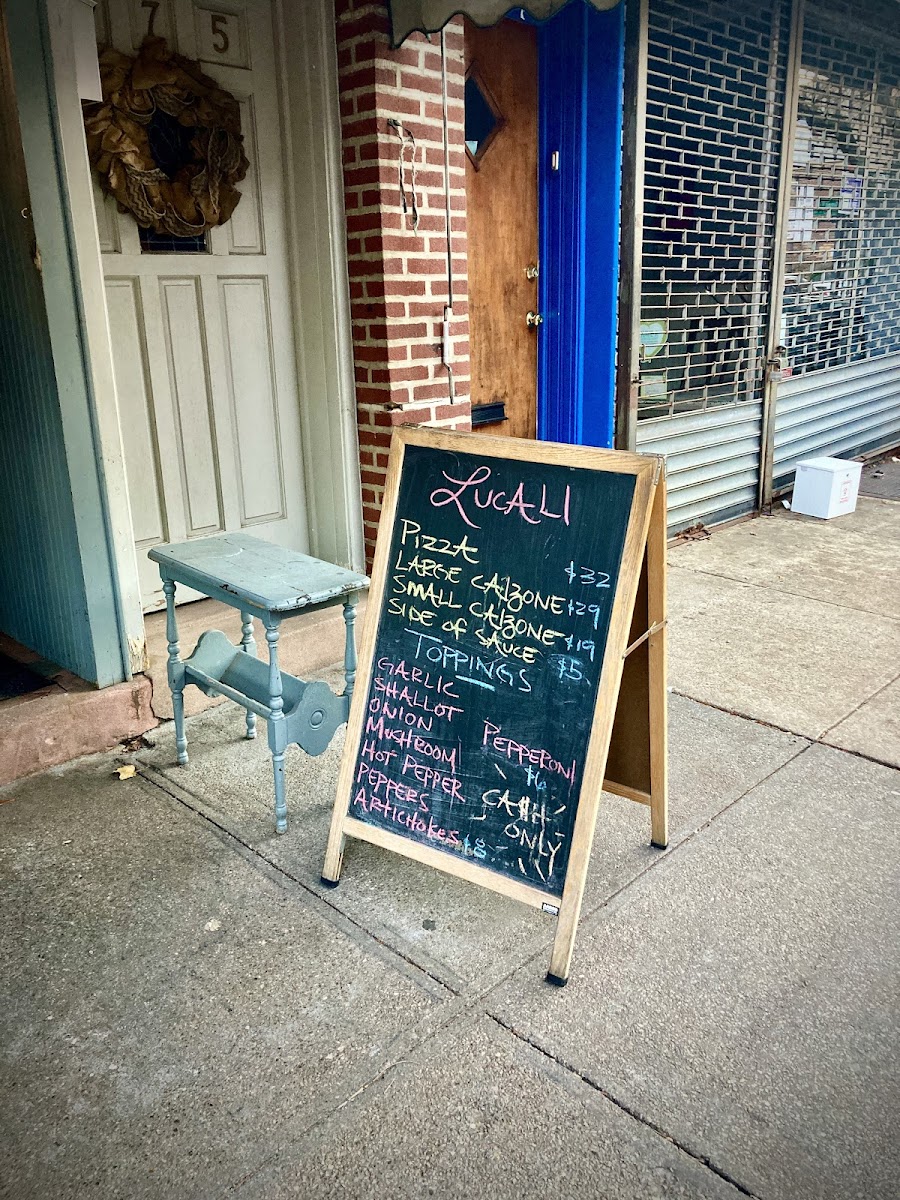 75
LUCALI
Pizza $32
LARGE CALZONE $29
SMALL CALZONE $19
SIDE OF SAUCE $5
TOPPINGS
GARLIC
SHALLOT
ONION
MUSHROOM
HOT PEPPER
PEPPERS
ARTICHOKES $8
PEPPERONI
$6
CASH
ONLY